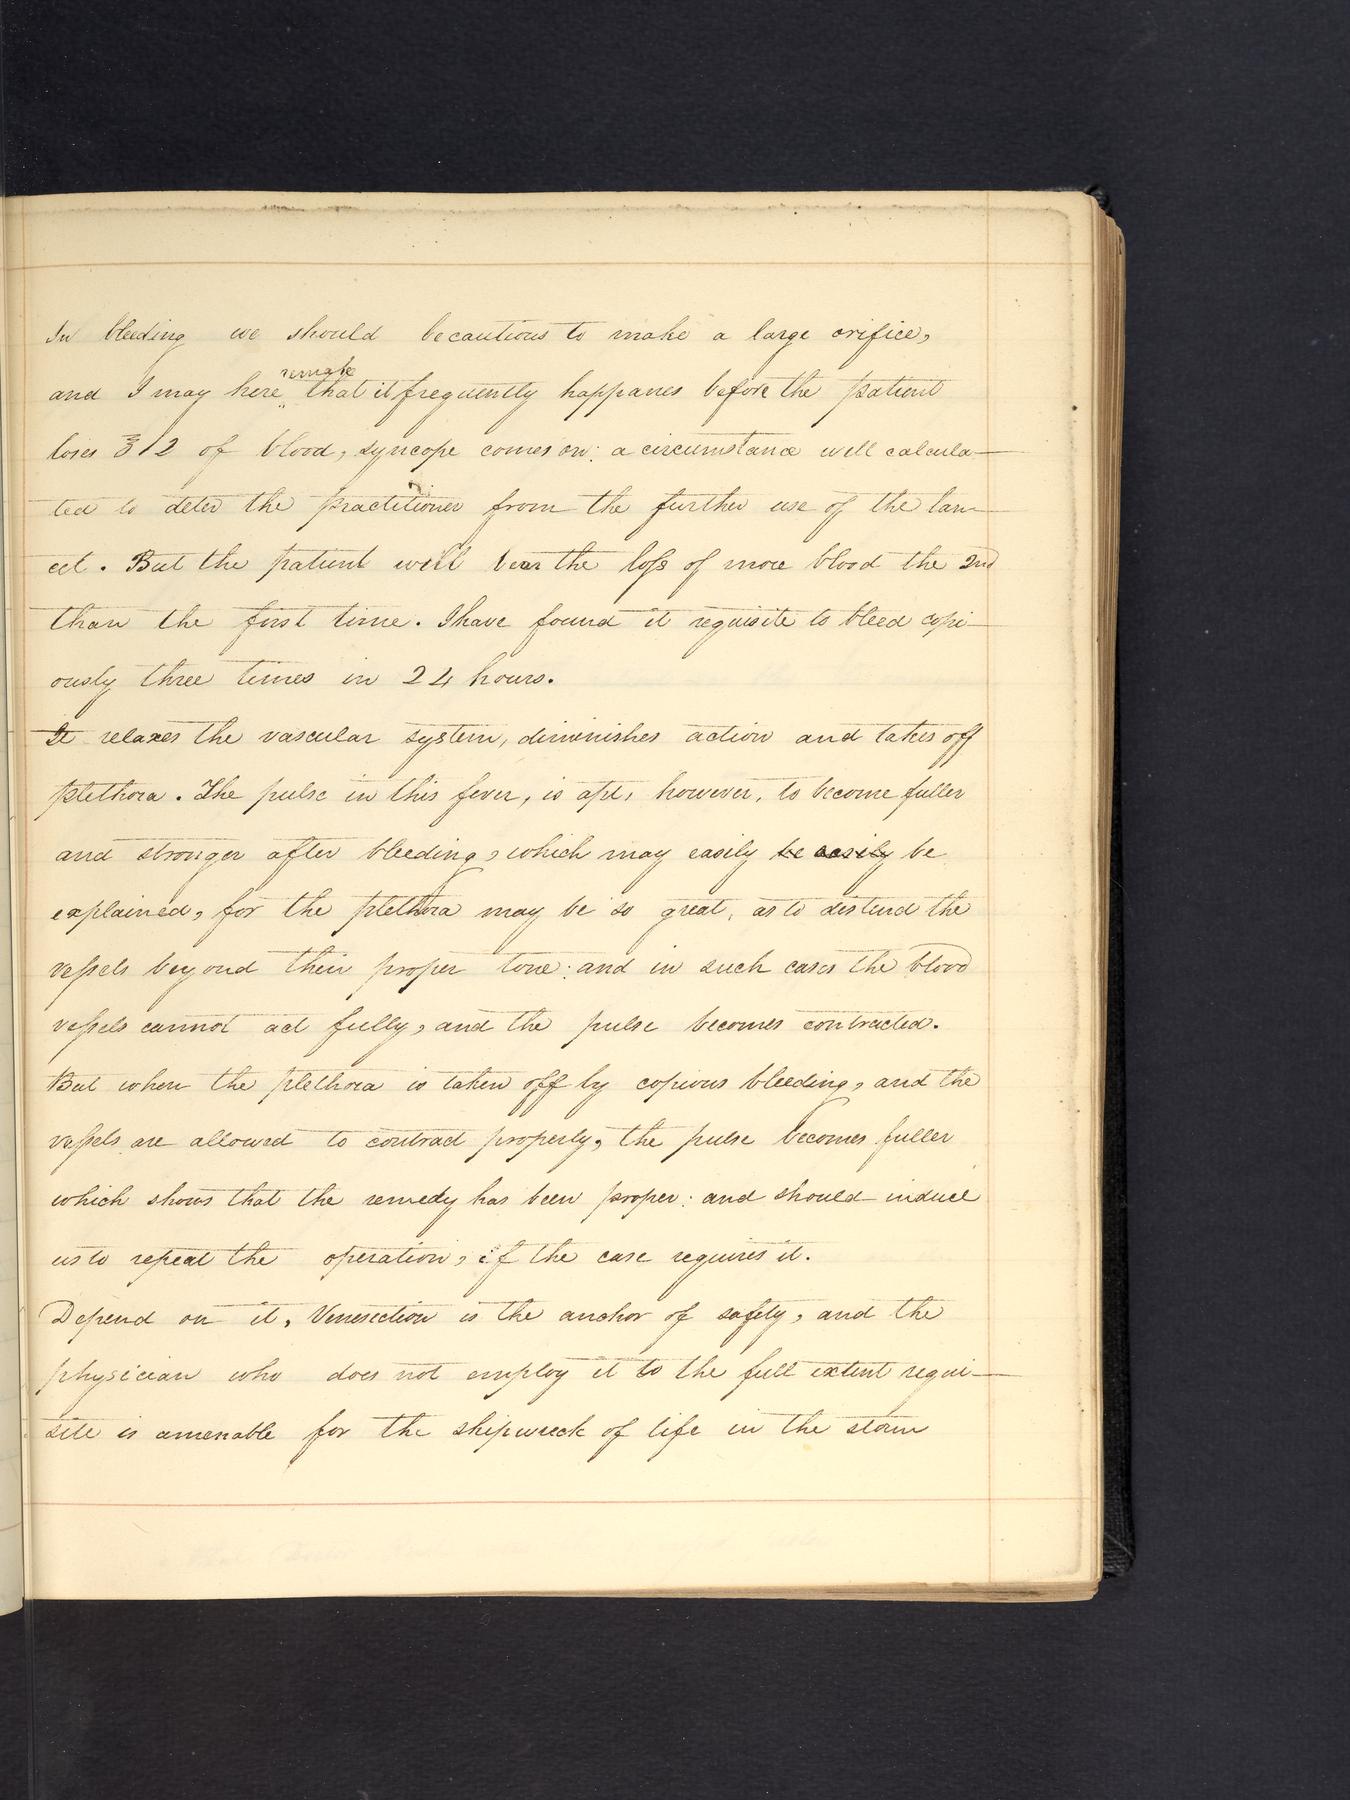 In bleeding we should be cautious to make a large orifice,
remark
and I may here that it frequently happanes before the patient
loses ℥12 of blood, syncope comes on: a circumstance well calcula-
ted to deter the practitioner from the further use of the lan-
cet. But the patient will bear the loss of more blood the 2nd
than the first time. I have found it requisite to bleed copi-
ously three times in 24 hours.
It relaxes the vascular system, diminishes action and takes off
plethora. The pulse in this fever, is apt, however, to become fuller
and stronger after bleeding, which may easily be easily be
explained, for the plethora may be so great, as to distend the
vessels beyond their proper tone: and in such cases the blood
vessels cannot act fully, and the pulse becomes contracted.
But when the plethora is taken off by copious bleeding, and the
vessels are allowed to contract properly, the pulse becomes fuller
which shows that the remedy has been proper: and should induce
us to repeat the operation, if the case requires it.
Depend on it, Venesection is the anchor of safety, and the
physician who does not employ it to the full extent requi-
site is amenable for the shipwreck of life in the storm